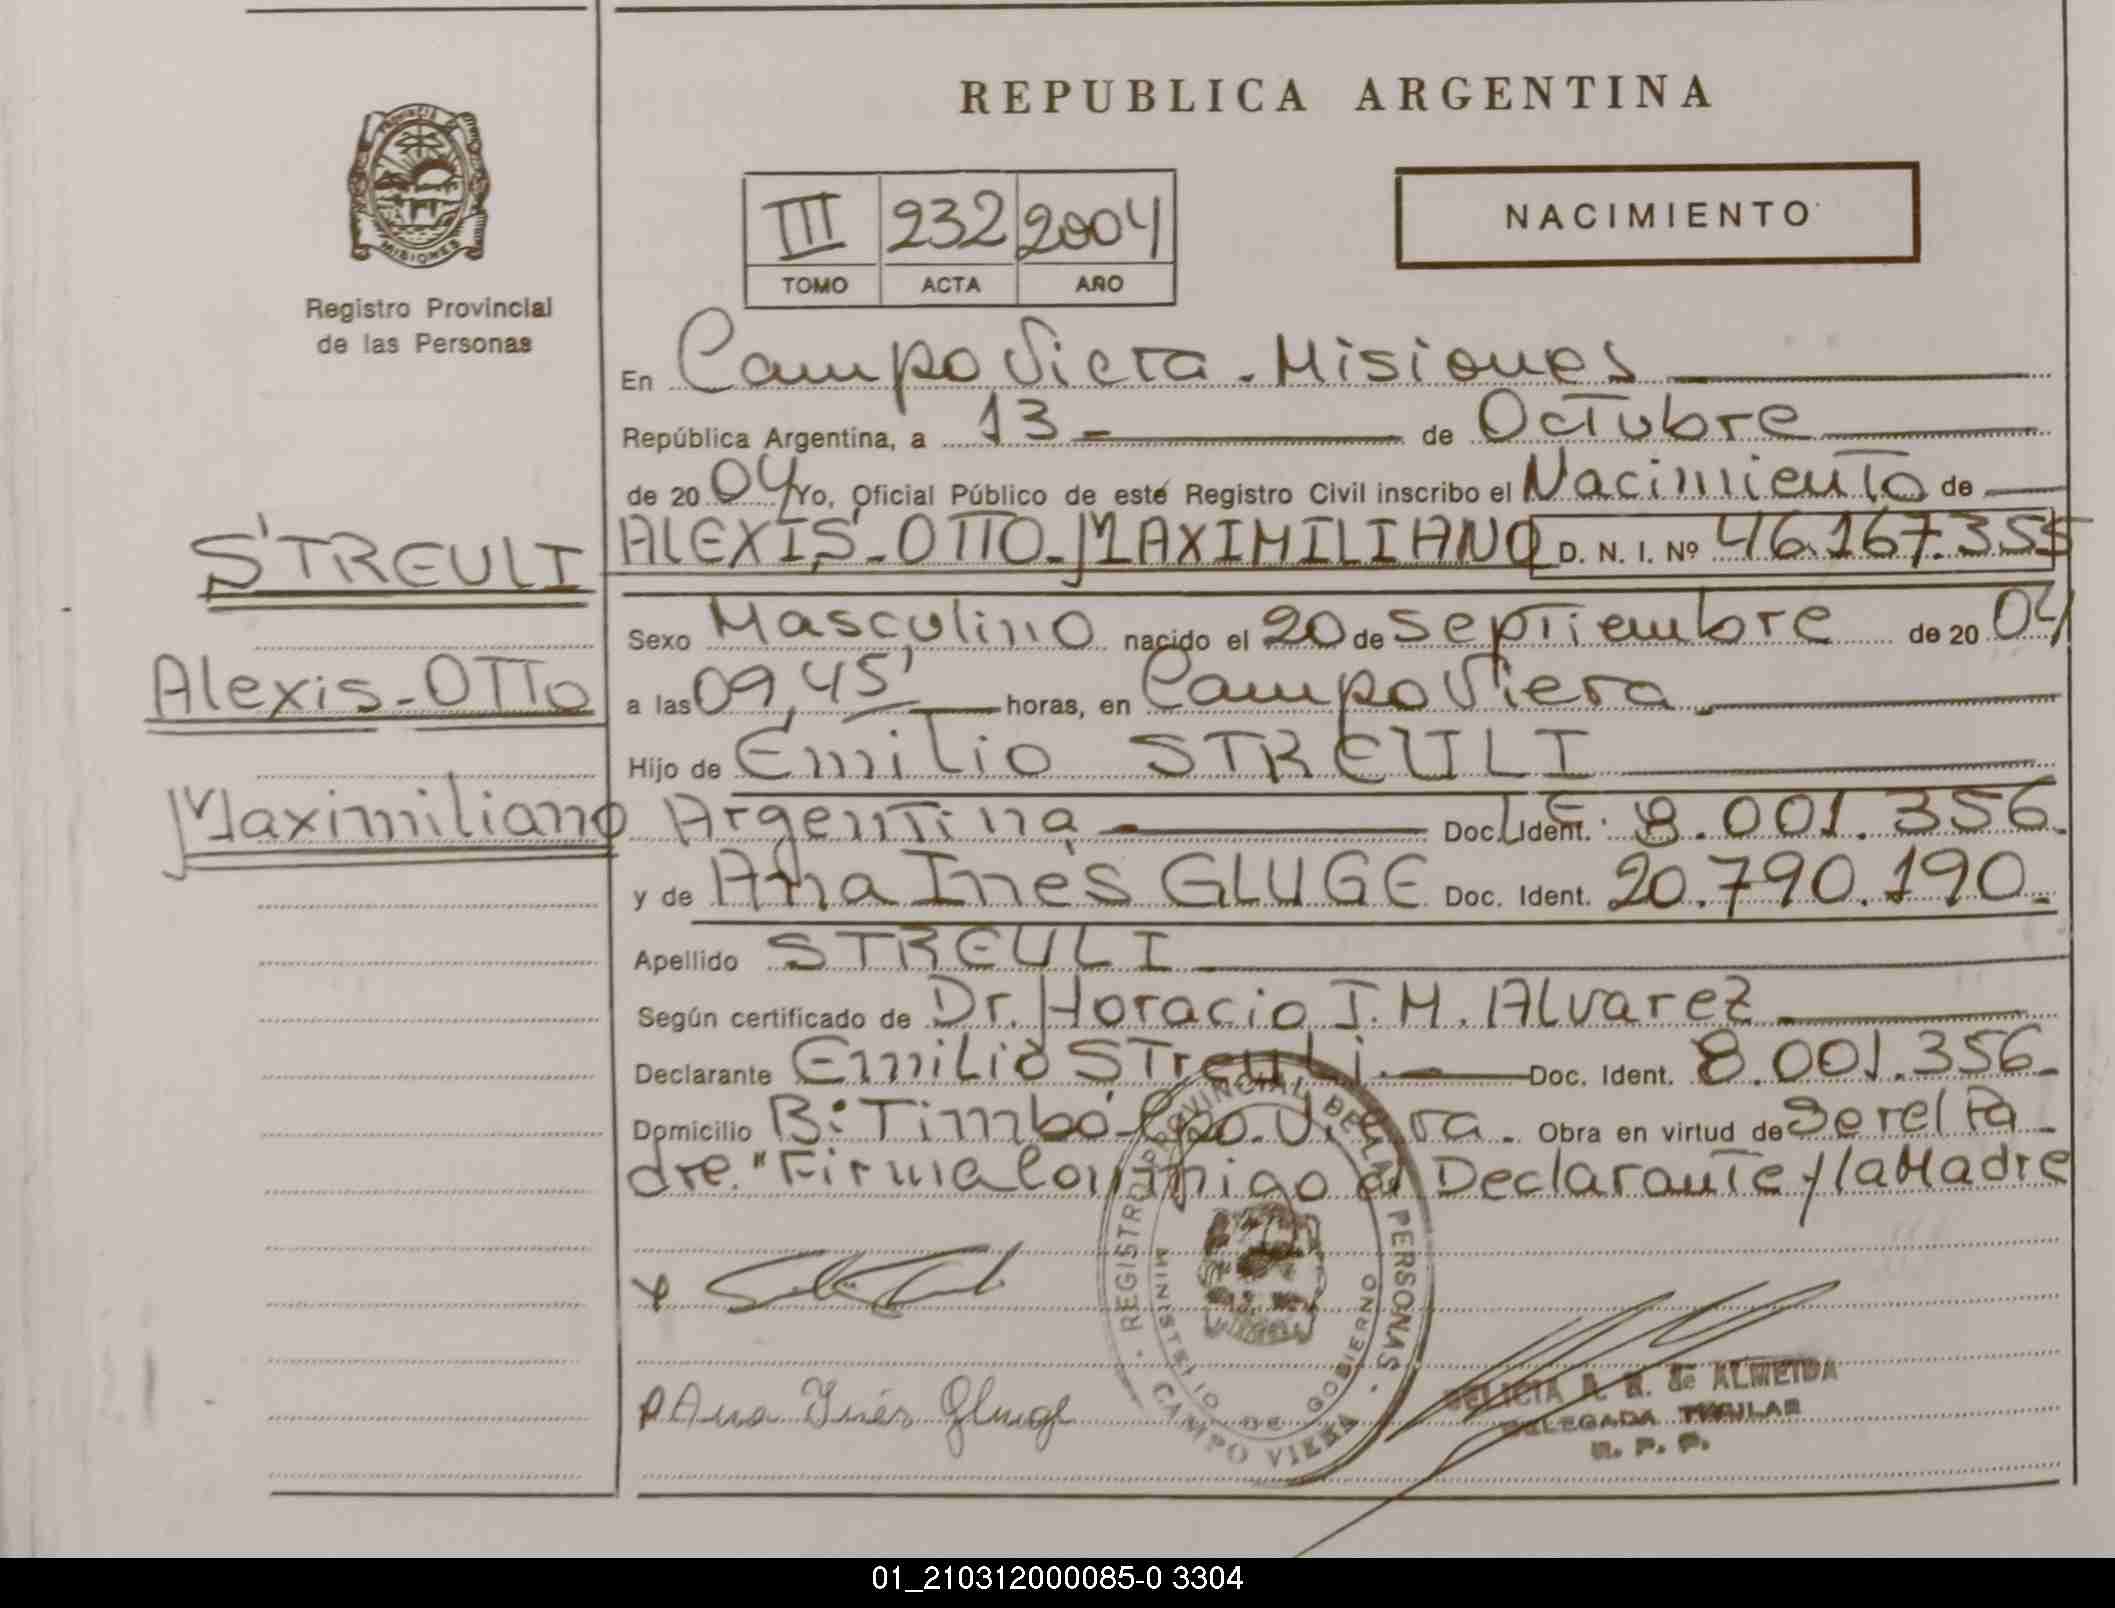 REPUBLICA ARGENTINA
PROVINCIA DE
MISIONES
Registro Provincial
de las Personas
III 232 2004
TOMO ACTA AÑO
NACIMIENTO
En Campo Viera - Misiones
República Argentina, a 13 - de Octubre
de 20 04 Yo, Oficial Público de este Registro Civil inscribo el Nacimiento de
STREULI
Alexis - OTTO
Maximiliano
ALEXIS - OTTO - MAXIMILIANO D. N. I. Nº 46.167.355
Sexo Masculino nacido el 20 de septiembre de 20 04
a las 09,45' horas, en Campo Viera
Hijo de Emilio STREULI
Argentina - Doc. Ident. L.E. 8.001.356.
y de Ana Inés GLUGE Doc. Ident. 20.790.190.
Apellido STREULI
Según certificado de Dr. Horacio J. M. Alvarez
Declarante Emilio Streuli. - Doc. Ident. 8.001.356
Domicilio B: Timbó - Cpo. Viera. Obra en virtud de Ser el Pa
dre. "Firma Conmigo el Declarante y la Madre
REGISTRO PROVINCIAL DE LAS PERSONAS
MINISTERIO DE GOBIERNO
CAMPO VIERA
Ana Inés Gluge
DELICIA A. R. de ALMEIDA
DELEGADA TITULAR
R. P. P.
01_210312000085-0 3304